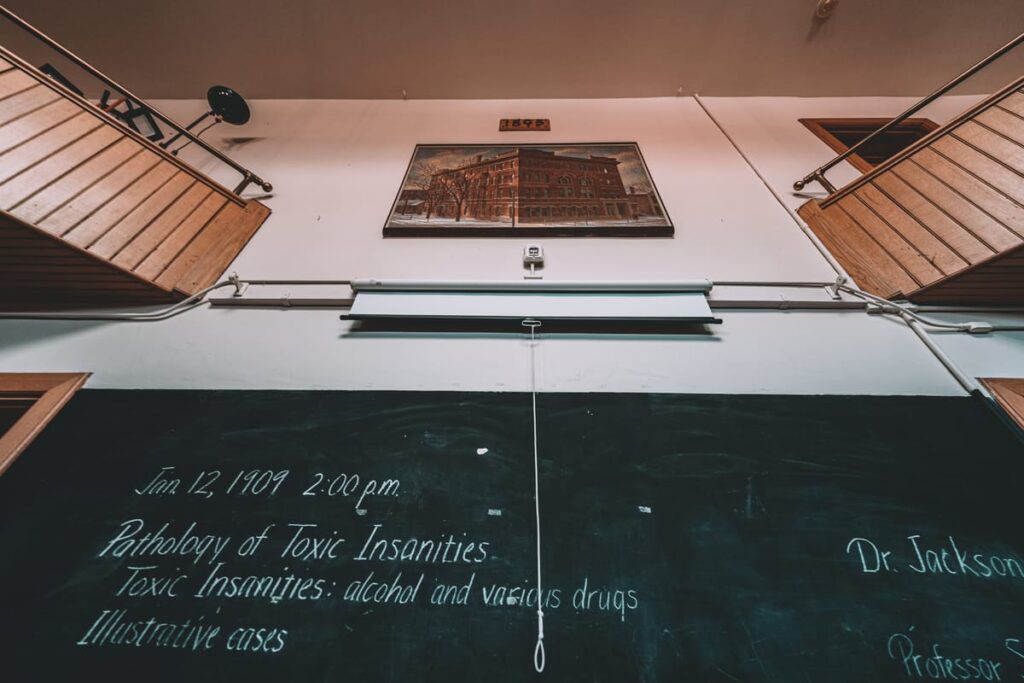 1895
Jan. 12, 1909 2:00 p.m.
Pathology of Toxic Insanities
Toxic Insanities: alcohol and various drugs
Illustrative cases
Dr. Jackson
Professor